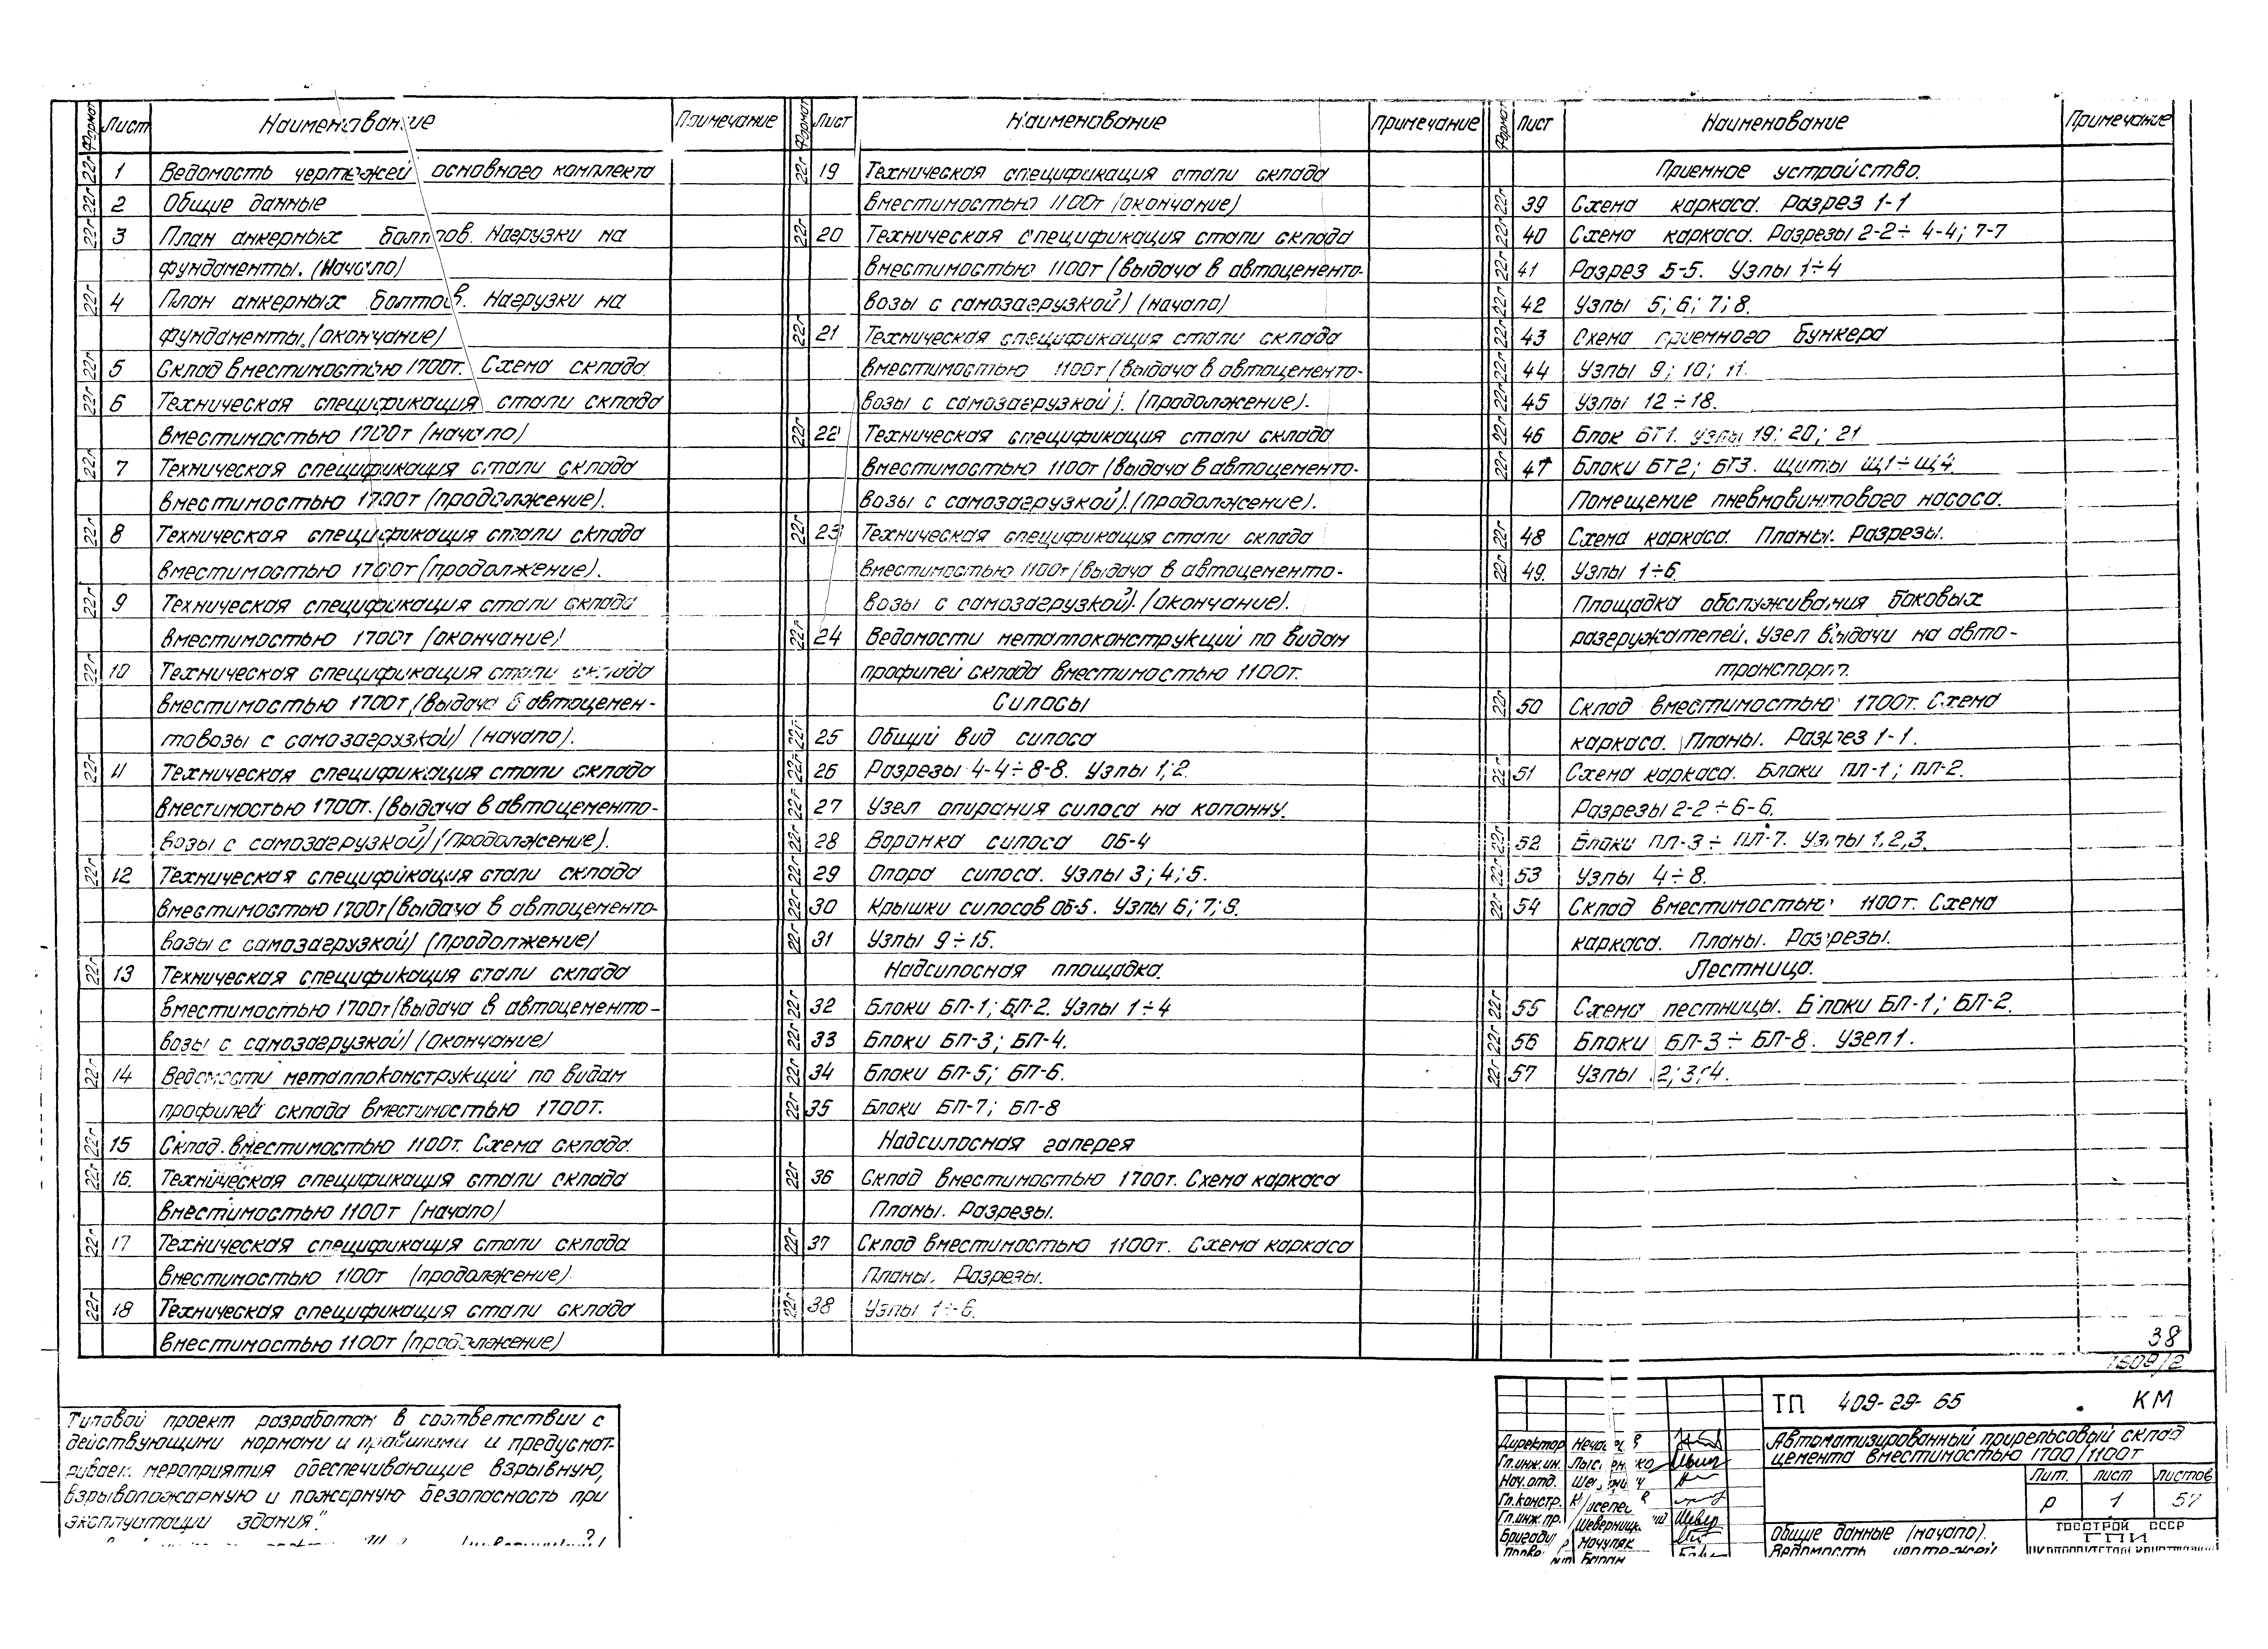 Формат Лист Наименование Примечание
22г 1 Ведомость чертежей основного комплекта
22г 2 Общие данные
22г 3 План анкерных болтов. Нагрузки на
фундаменты. (Начало)
22г 4 План анкерных болтов. Нагрузки на
фундаменты. (окончание)
22г 5 Склад вместимостью 1700т. Схема склада
22г 6 Техническая спецификация стали склада
вместимостью 1700т (начало)
22г 7 Техническая спецификация стали склада
вместимостью 1700т (продолжение).
22г 8 Техническая спецификация стали склада
вместимостью 1700т (продолжение).
22г 9 Техническая спецификация стали склада
вместимостью 1700т (окончание)
22г 10 Техническая спецификация стали склада
вместимостью 1700т (выдача в автоцемен-
товозы с самозагрузкой) (начало).
22г 11 Техническая спецификация стали склада
вместимостью 1700т. (выдача в автоцементо-
возы с самозагрузкой) (продолжение).
22г 12 Техническая спецификация стали склада
вместимостью 1700т (выдача в автоцементо-
возы с самозагрузкой) (продолжение)
22г 13 Техническая спецификация стали склада
вместимостью 1700т (выдача в автоцементо-
возы с самозагрузкой) (окончание)
22г 14 Ведомости металлоконструкций по видам
профилей склада вместимостью 1700т.
22г 15 Склад вместимостью 1100т. Схема склада.
22г 16. Техническая спецификация стали склада
вместимостью 1100т (начало)
22г 17 Техническая спецификация стали склада
вместимостью 1100т (продолжение)
22г 18 Техническая спецификация стали склада
вместимостью 1100т (продолжение)
Формат Лист Наименование Примечание
22г 19 Техническая спецификация стали склада
вместимостью 1100т (окончание)
22г 20 Техническая спецификация стали склада
вместимостью 1100т (выдача в автоцементо-
возы с самозагрузкой) (начало)
22г 21 Техническая спецификация стали склада
вместимостью 1100т (выдача в автоцементо-
возы с самозагрузкой). (продолжение).
22г 22 Техническая спецификация стали склада
вместимостью 1100т (выдача в автоцементо-
возы с самозагрузкой). (продолжение).
22г 23 Техническая спецификация стали склада
вместимостью 1100т (выдача в автоцементо-
возы с самозагрузкой). (окончание).
22г 24 Ведомости металлоконструкций по видам
профилей склада вместимостью 1100т.
Силосы
22г 25 Общий вид силоса
22г 26 Разрезы 4-4÷8-8. Узлы 1; 2.
22г 27 Узел опирания силоса на колонну.
22г 28 Воронка силоса ОБ-4
22г 29 Опора силоса. Узлы 3; 4; 5.
22г 30 Крышки силосов ОБ-5. Узлы 6; 7; 8.
22г 31 Узлы 9÷15.
Надсилосная площадка.
22г 32 Блоки БП-1; БП-2. Узлы 1÷4
22г 33 Блоки БП-3; БП-4.
22г 34 Блоки БП-5; БП-6.
22г 35 Блоки БП-7; БП-8
Надсилосная галерея
22г 36 Склад вместимостью 1700т. Схема каркаса
Планы. Разрезы.
22г 37 Склад вместимостью 1100т. Схема каркаса
Планы. Разрезы.
22г 38 Узлы 1÷6.
Формат Лист Наименование Примечание
Приемное устройство.
22г 39 Схема каркаса. Разрез 1-1
22г 40 Схема каркаса. Разрезы 2-2÷4-4; 7-7
22г 41 Разрез 5-5. Узлы 1÷4
22г 42 Узлы 5; 6; 7; 8.
22г 43 Схема приемного бункера
22г 44 Узлы 9; 10; 11.
22г 45 Узлы 12÷18.
22г 46 Блок БТ1. Узлы 19; 20; 21
22г 47 Блоки БТ2; БТ3. Щиты Щ1÷Щ4.
Помещение пневмовинтового насоса.
22г 48 Схема каркаса. Планы. Разрезы.
22г 49. Узлы 1÷6.
Площадка обслуживания боковых
разгружателей. Узел выдачи на авто-
транспорт.
22г 50 Склад вместимостью 1700т. Схема
каркаса. Планы. Разрез 1-1.
22г 51 Схема каркаса. Блоки ПЛ-1; ПЛ-2.
Разрезы 2-2÷6-6.
22г 52 Блоки ПЛ-3÷ПЛ-7. Узлы 1,2,3.
22г 53 Узлы 4÷8.
22г 54 Склад вместимостью 1100т. Схема
каркаса. Планы. Разрезы.
Лестница.
22г 55 Схема лестницы. Блоки БЛ-1; БЛ-2.
22г 56 Блоки БЛ-3÷БЛ-8. Узел 1.
22г 57 Узлы 2; 3; 4.
38
1609/2
Типовой проект разработан в соответствии с
действующими нормами и правилами и предусмат-
ривает мероприятия обеспечивающие взрывную,
взрывопожарную и пожарную безопасность при
эксплуатации здания."
ТП 409-29-65 КМ
Автоматизированный прирельсовый склад
цемента вместимостью 1700/1100т
Лит. лист листов
Р 1 57
Директор
Гл.инж.ин.
Нач.отд.
Гл.констр.
Гл.инж.пр. Шеверницкий
Бригадир Мачуляк
Общие данные (начало).
Ведомость чертежей
ГОССТРОЙ СССР
ГПИ